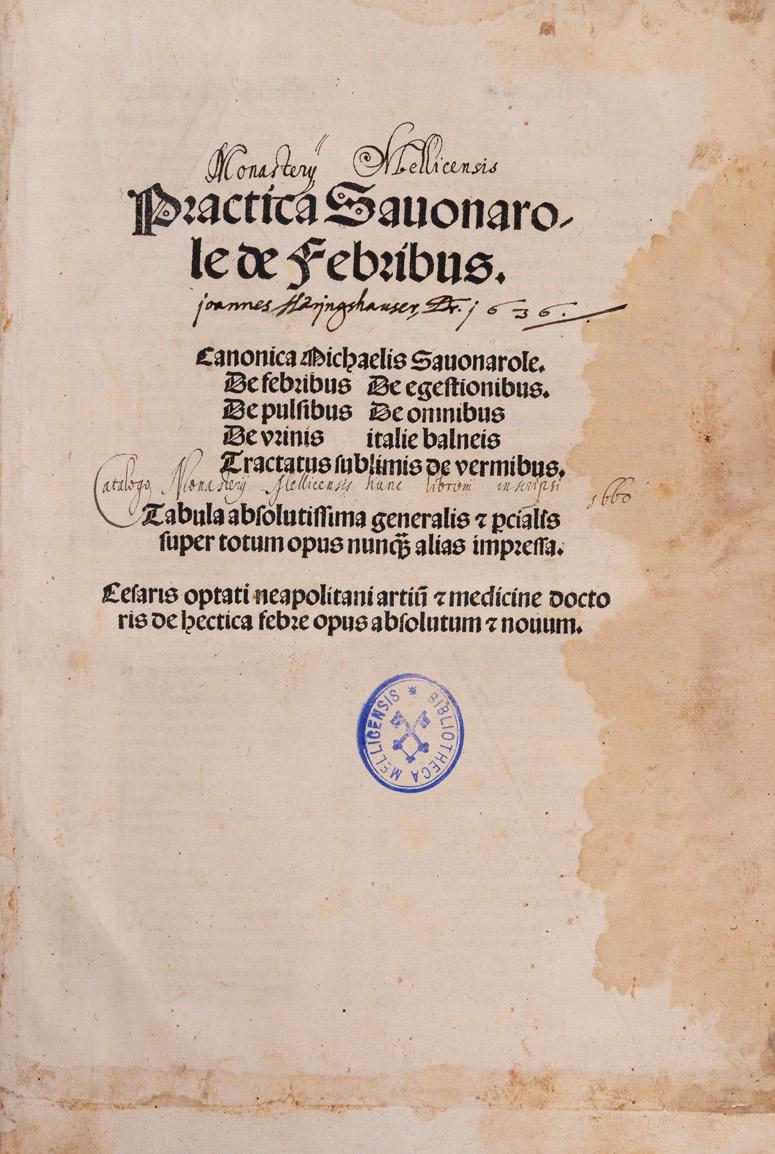 Monasterÿ Mellicensis
Practica Sauonaro-
le de Febribus.
joannes Häringshauser, Dr. 1636.
Canonica Michaelis Sauonarole.
De febribus De egestionibus.
De pulsibus De omnibus
De vrinis italie balneis
Tractatus sublimis de vermibus.
Catalogo Monasterij Mellicensis hunc librum inscripsi 1660
Tabula absolutissima generalis ⁊ ꝑcialis
super totum opus nunqꝫ̃ alias impressa.
Cesaris optati neapolitani artiū ⁊ medicine docto
ris de hectica febre opus absolutum ⁊ nouum.
BIBLIOTHECA MELLICENSIS *